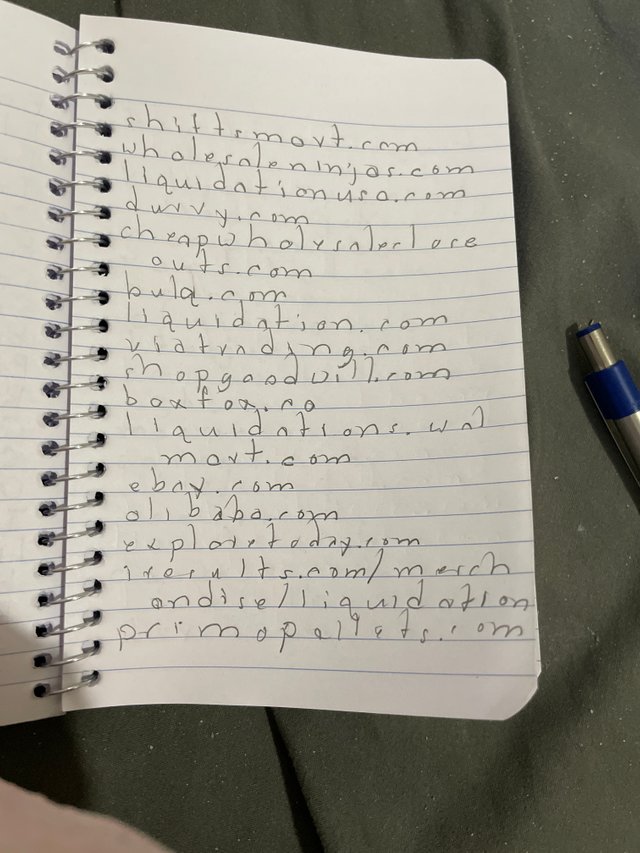 shiftsmart.com
wholesaleninjas.com
liquidationusa.com
durvy.com
cheapwholesalerclose
outs.com
bulq.com
liquidation.com
viatrading.com
shopgoodwill.com
boxfox.co
liquidations.wal
mart.com
ebay.com
alibaba.com
exploretoday.com
iresults.com/merch
andise/liquidation
primopallats.com